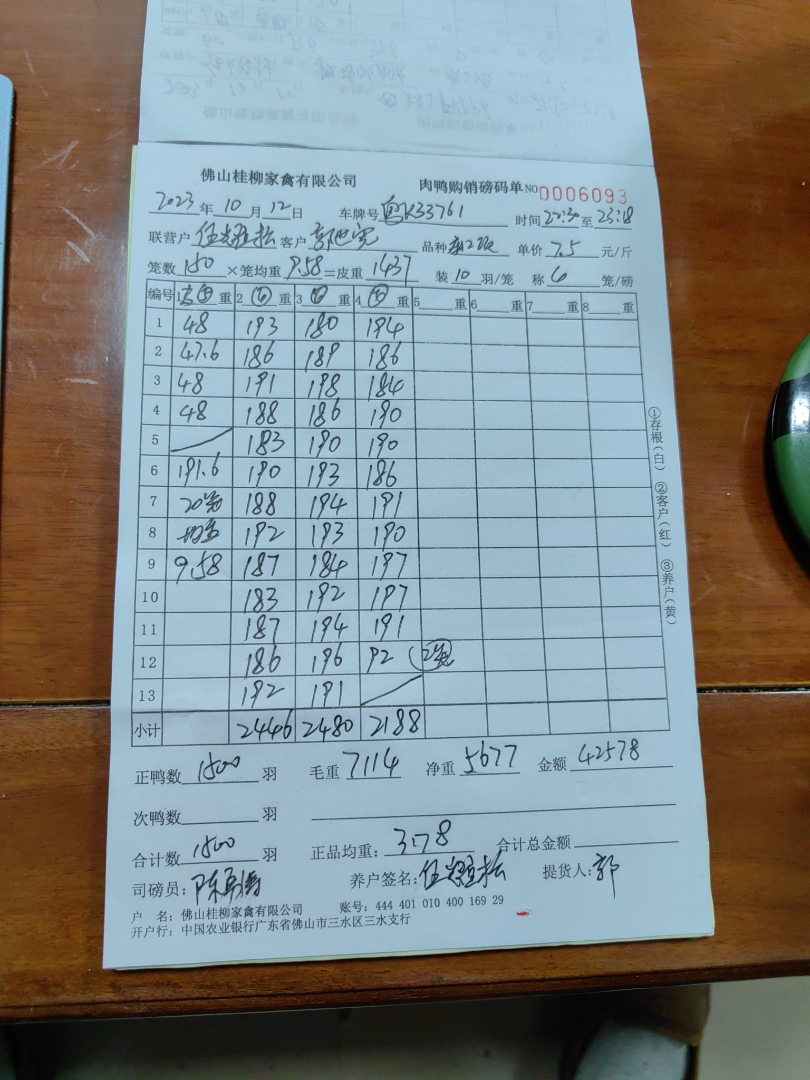 佛山桂柳家禽有限公司 肉鸭购销磅码单 NO 0006093
2023年10月12日 车牌号 粤K33761 时间 22:30至23:18
联营户 客户 品种 单价 7.5 元/斤
笼数 150 ×笼均重 9.58 =皮重 1437 装 10 羽/笼 称 6 笼/磅
编号 1 重 2 ⑥ 重 3 ⑥ 重 4 ⑥ 重 5 重 6 重 7 重 8 重
1 48 193 180 194
2 47.6 186 189 186
3 48 191 198 184
4 48 188 186 190
5 183 190 190
6 191.6 190 193 186
7 20笼 188 194 191
8 均重 192 193 190
9 9.58 187 184 197
10 183 192 197
11 187 194 191
12 186 196 92
13 192 191
小计 2446 2480 2188
正鸭数 1500 羽 毛重 7114 净重 5677 金额 42578
次鸭数 羽
合计数 1500 羽 正品均重: 3.78 合计总金额
司磅员: 养户签名: 提货人: 郭
户 名: 佛山桂柳家禽有限公司 账号: 444 401 010 400 169 29
开户行: 中国农业银行广东省佛山市三水区三水支行
①存根(白) ②客户(红) ③养户(黄)